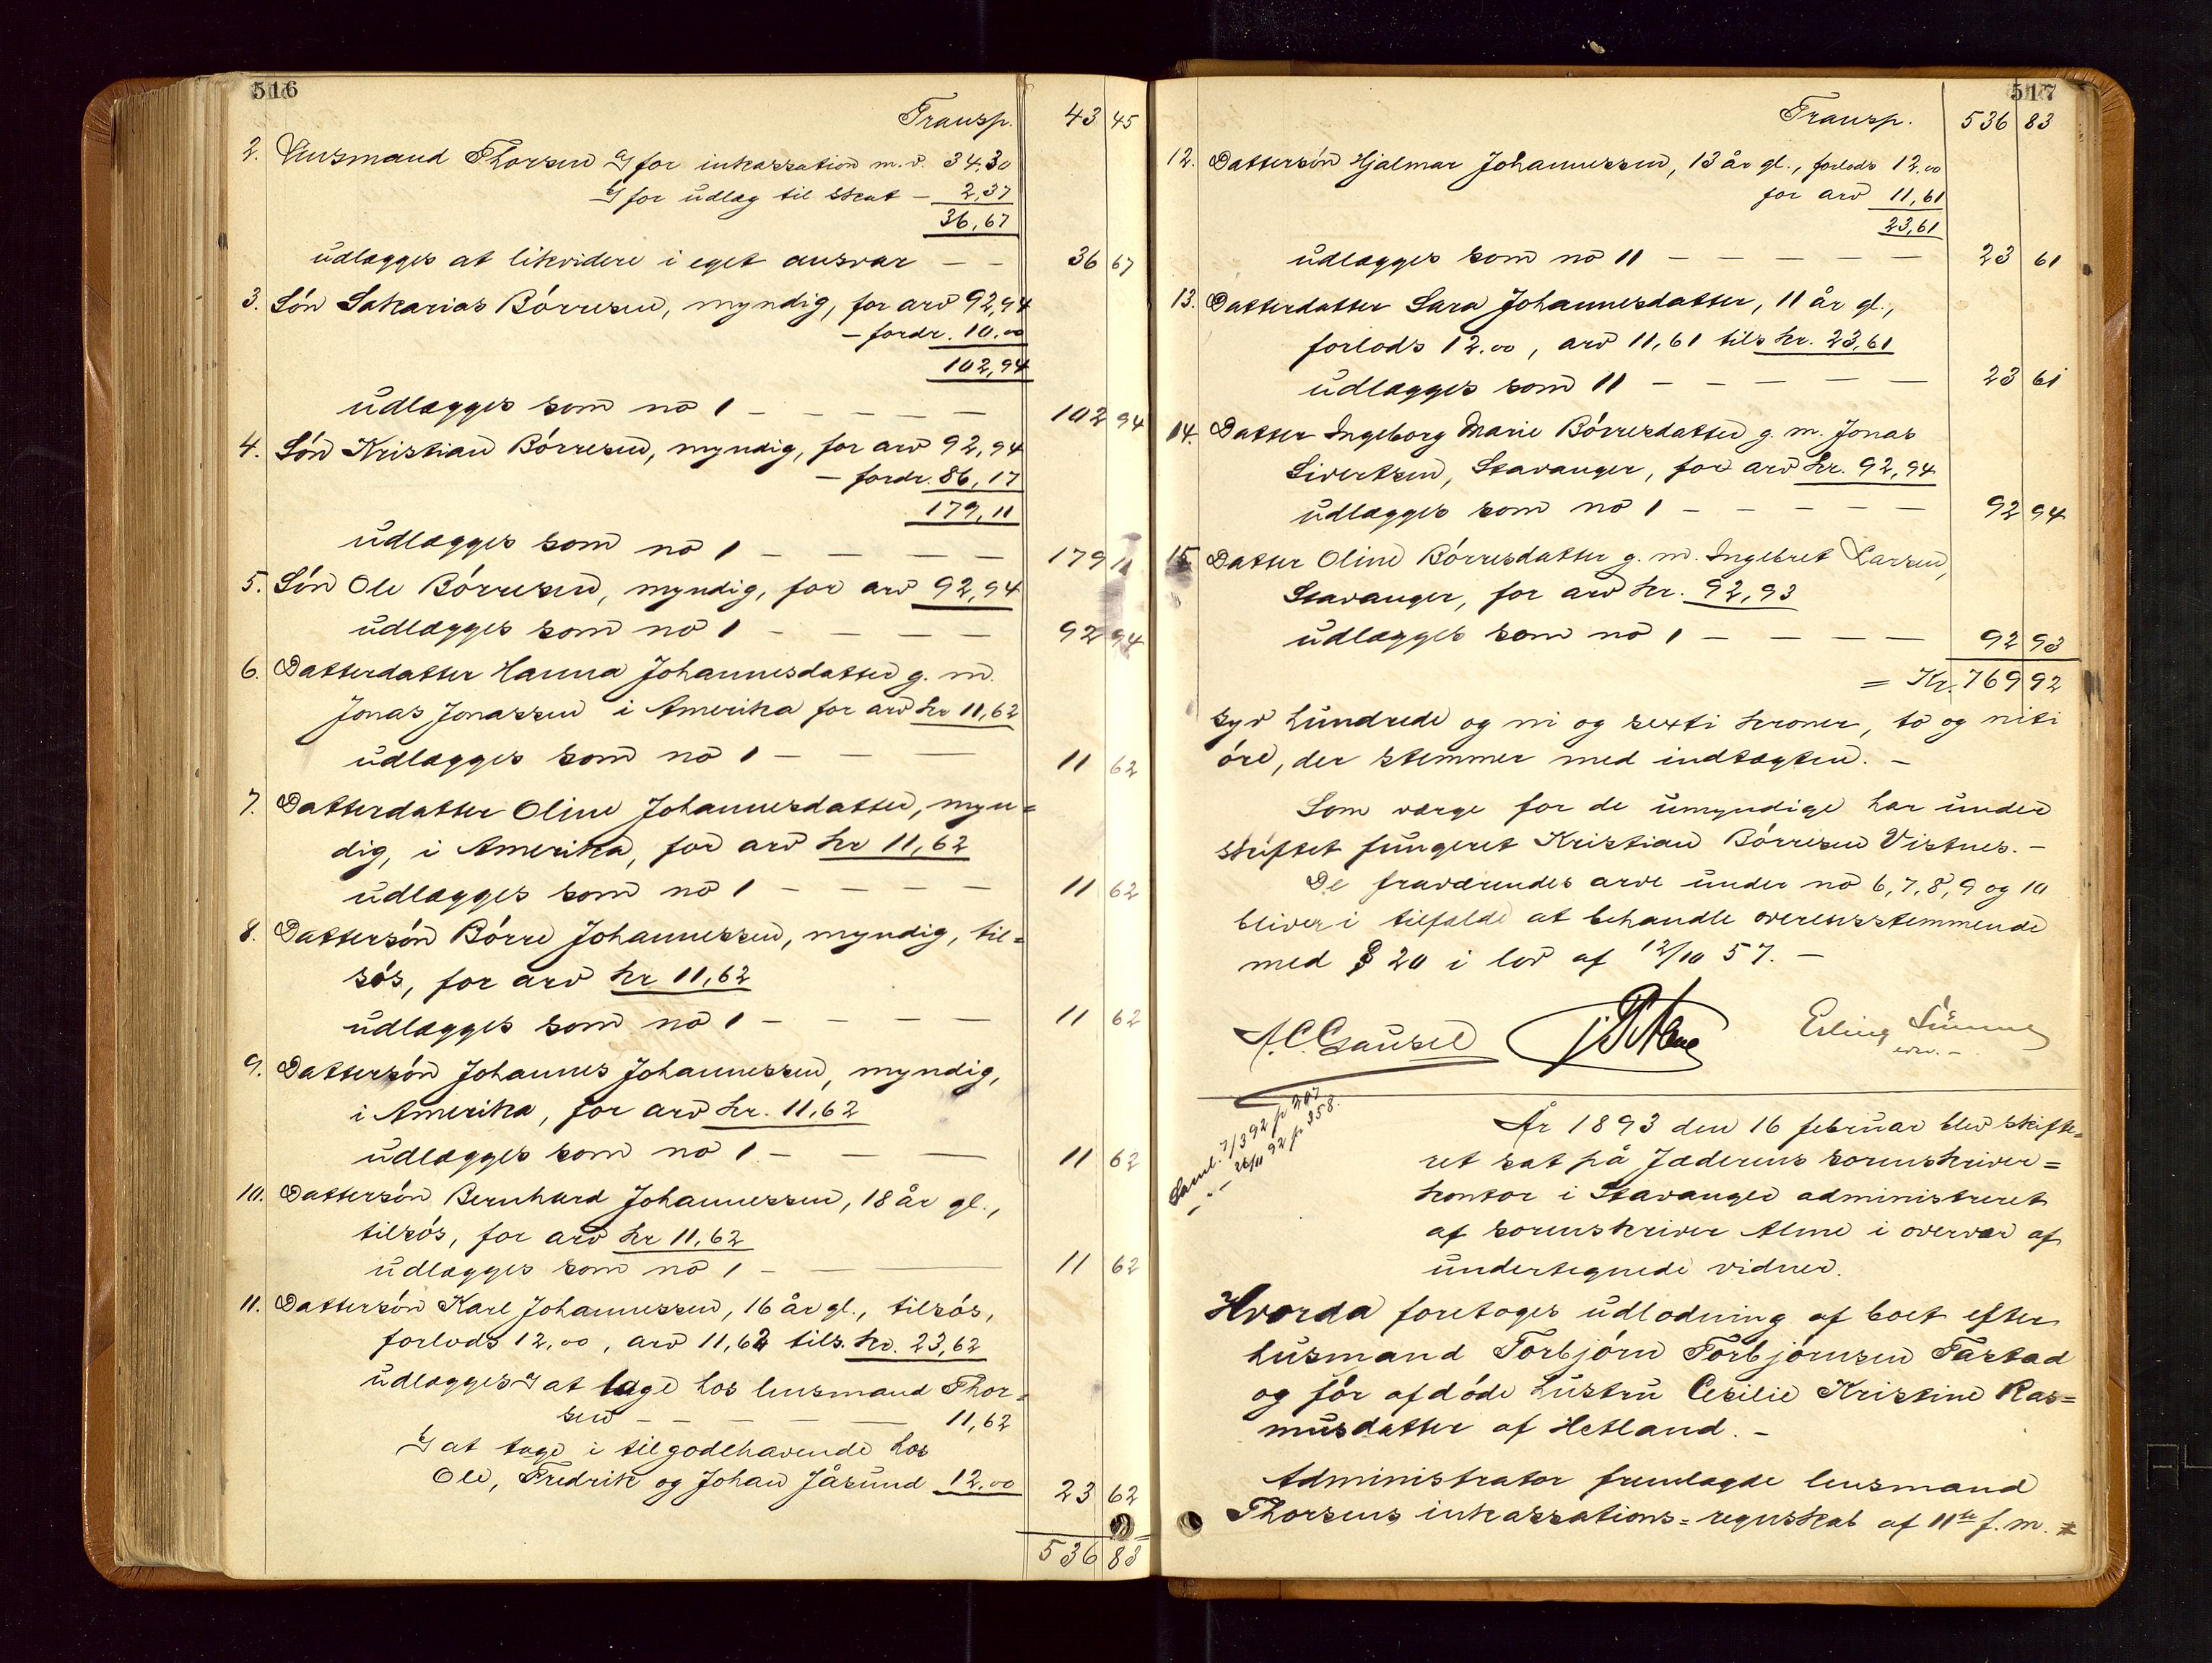 516
Transp. 43 45
2. Lensmand Thorsen a/ for inkassation m.v. 34,30
b/ for udlæg til skat – 2,37
36,67
udlægges at likvidere i eget ansvar – – 36 67
3. Sön Sakarias Börresen, myndig, for arv 92,94
– fordr. 10.00
102,94
udlægges som no 1 – – – – – 102 94
4. Sön Kristian Börresen, myndig, for arv 92,94
– fordr. 86,17
179,11
udlægges som no 1 – – – – 179 11
5. Sön Ole Börresen, myndig, for arv 92,94
udlægges som no 1 – – – – 92 94
6. Datterdatter Hanna Johannesdatter g. m.
Jonas Jonassen i Amerika for arv kr 11,62
udlægges som no 1 – – – 11 62
7. Datterdatter Oline Johannesdatter, myn=
dig, i Amerika, for arv kr 11,62
udlægges som no 1 – – – – 11 62
8. Dattersön Börre Johannessen, myndig, til=
søs, for arv kr 11,62
udlægges som no 1 – – – – 11 62
9. Dattersön Johannes Johannessen, myndig,
i Amerika, for arv kr. 11,62
udlægges som no 1 – – – 11 62
10. Dattersön Bernhard Johannessen, 18 år gl.,
tilsös, for arv kr 11,62
udlægges som no 1 – – – 11 62
11. Dattersön Karl Johannessen, 16 år gl., tilsös,
forlods 12,00, arv 11,62 tils. kr. 23,62
udlægges a/ at tage hos lensmand Thor=
sen – – – – – 11,62
b/ at tage i tilgodehavende hos
Ole, Fredrik og Johan Jåsund 12.00 23 62
536 83
517
Transp. 536 83
12. Dattersön Hjalmar Johannessen, 13 år gl., forlods 12.00
for arv 11,61
23,61
udlægges som no 11 – – – – – 23 61
13. Datterdatter Sara Johannesdatter, 11 år gl.,
forlods 12.00, arv 11,61 tils kr. 23,61
udlægges som 11 – – – – – 23 61
14. Datter Ingeborg Marie Börresdatter g. m. Jonas
Sivertsen, Stavanger, for arv kr. 92,94
udlægges som no 1 – – – – – 92 94
15 Datter Oline Börresdatter g. m. Ingebret Larsen,
Stavanger, for arv kr. 92,93
udlægges som no 1 – – – – 92 93
= Kr. 769 92
syv hundrede og ni og sexti kroner, to og niti
öre, der stemmer med indtægten. –
Som værge for de umyndige har under
skiftet fungeret Kristian Börresen Vistnes. –
De fraværendes arve under no 6, 7, 8, 9 og 10
bliver i tilfælde at behandle overensstemmende
med § 20 i lov af 12/10 57. –
A. C. Gausel Erling
Saml. 7/3 92 p 207
– " – 26/11 92 p. 358.
År 1893 den 16 februar blev skifte=
ret sat på Jæderens sorenskriver=
kontor i Stavanger administreret
af sorenskriver Alme i overvær af
undertegnede vidner.
Hvorda foretoges udlodning af boet efter
husmand Torbjörn Torbjörnsen Tastad
og för afdöde hustru Cecilie Kristine Ras=
musdatter af Hetland. –
Administrator fremlagde lensmand
Thorsens inkassations=regnskab af 11te f. m.